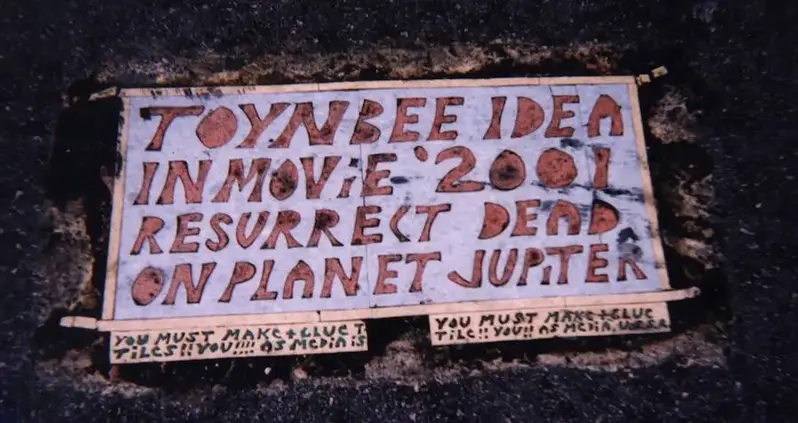 TOYNBEE IDEA
IN MOViE '2001
RESURRECT DEAD
ON PLANET JUPiTER
YOU MUST MAKE + GLUE T
TILES!! YOU!!!! AS MEDIA iS
YOU MUST MAKE + GLUE
TILE!! YOU!! AS MEDIA, U.S.S.R